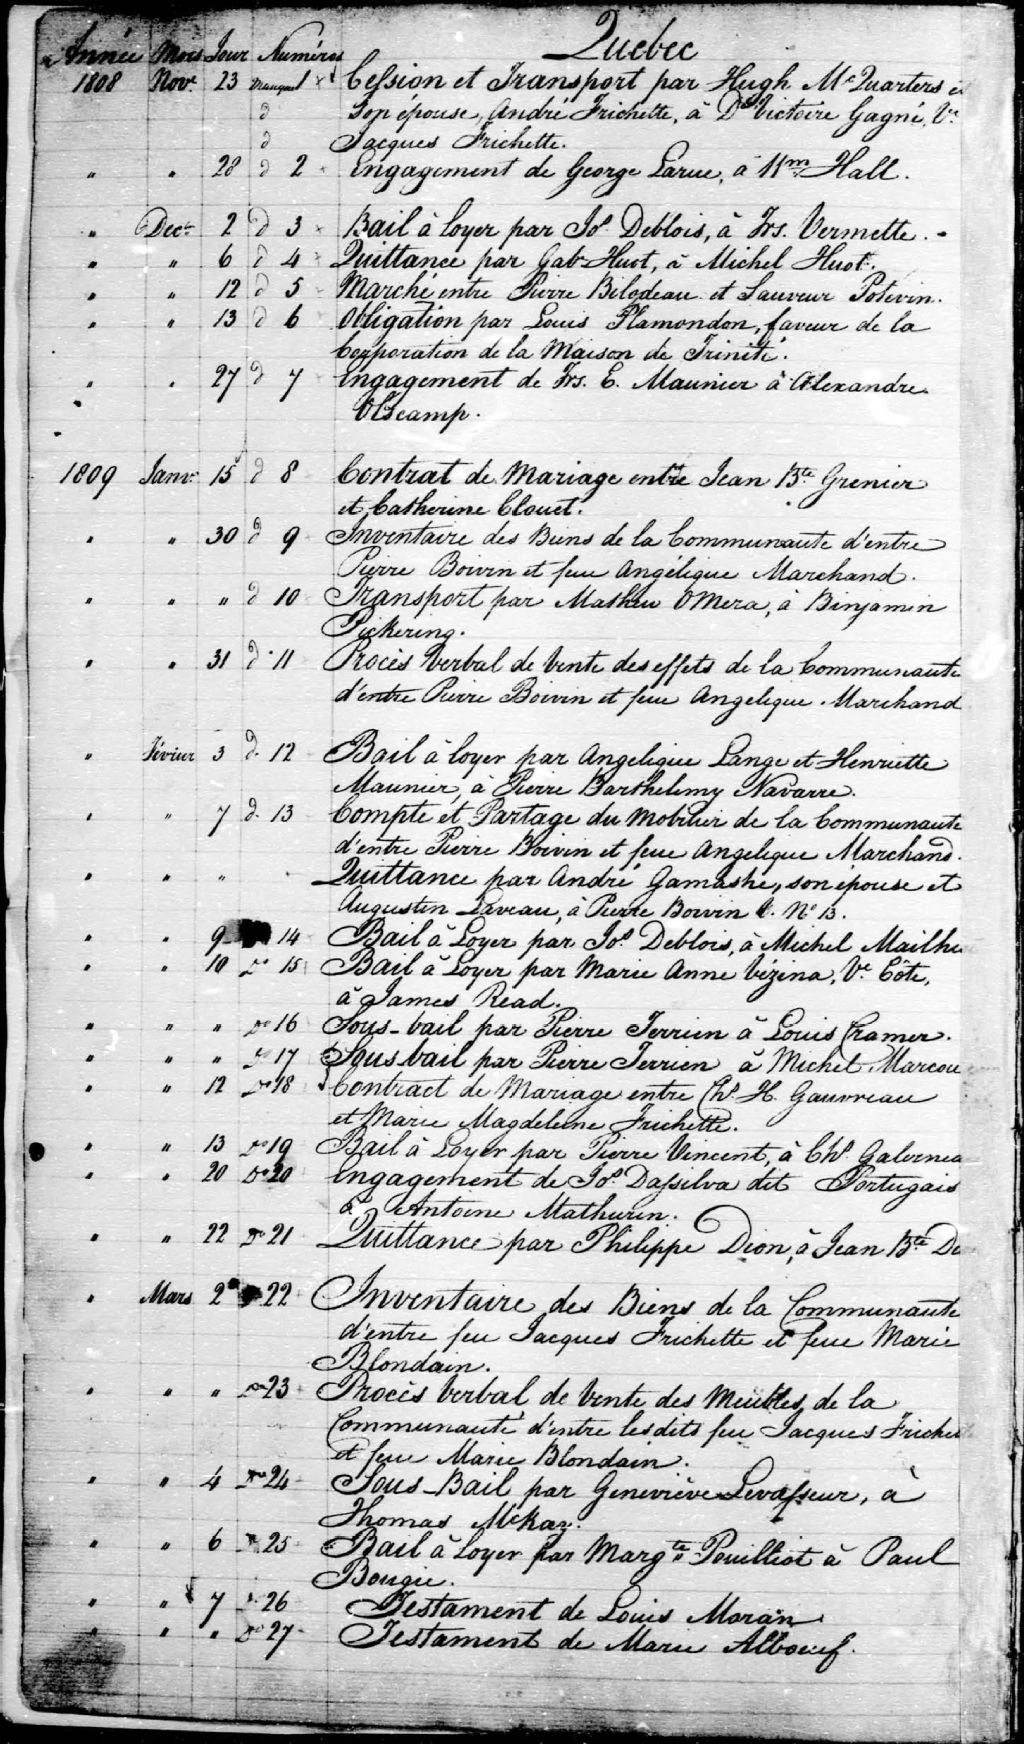 Quebec
Année Mois Jour Numéros
1808 Novr. 23 manque 1 Cession et Transport par Hugh McQuarters et
d Son épouse, André Frichette, à De. Victoire Gagné, Ve.
d Jacques Frichette.
" " 28 d 2 Engagement de George Larue, à Wm. Hall.
" Decr. 2 d 3 Bail à loyer par Jos. Deblois, à Frs. Vermette.
" " 6 d 4 Quittance par Gabl. Huot, à Michel Huot.
" " 12 d 5 Marché entre Pierre Bilodeau et Sauveur Potevin.
" " 13 d 6 Obligation par Louis Plamondon, faveur de la
Corporation de la Maison de Trinité.
" " 27 d 7 Engagement de Frs. E. Maunier à Alexandre
Olscamp.
1809 Janvr. 15 d 8 Contrat de Mariage entre Jean Bte. Grenier
et Catherine Clouet.
" " 30 d 9 Inventaire des Biens de la Communaute d'entre
Pierre Boivin et feue Angelique Marchand.
" " " d 10 Transport par Mathew OMera, à Binjamin
Pickering.
" " 31 d 11 Procès Verbal de Vente des effets de la Communaute
d'entre Pierre Boivin et feue Angelique Marchand
" Février 3 d. 12 Bail à loyer par Angelique Lange et Henriette
Maunier, à Pierre Barthelemy Navarre.
" " 7 d. 13 Compte et Partage du Mobilier de la Communaute
d'entre Pierre Boivin et feue Angelique Marchand.
" " " Quittance par André Gamashe, son épouse et
Augustin Laveau, à Pierre Boivin V. No 13.
" " 9 14 Bail à Loyer par Jos. Deblois, à Michel Mailhe
" " 10 Do 15 Bail à Loyer par Marie Anne Vézina, Ve. Côte,
à James Read.
" " " Do 16 Sous-bail par Pierre Terrien à Louis Cramer.
" " " Do 17 Sous bail par Pierre Terrien à Michel Marcou
" " 12 Do 18 Contract de Mariage entre Chs. H. Gauvreau
et Marie Magdeleine Frichette.
" " 13 Do 19 Bail à Loyer par Pierre Vincent, à Chs. Galernea
" " 20 Do 20 Engagement de Jos. Dassilva dit Portugais
à Antoine Mathurin.
" " 22 Do 21 Quittance par Philippe Dion, à Jean Bte. De
" Mars 2 22 Inventaire des Biens de la Communaute
d'entre feu Jacques Frichette et feue Marie
Blondain.
" " " Do 23 Procès Verbal de Vente des Meubles de la
Communauté d'entre lesdits feu Jacques Frichet
et feue Marie Blondain.
" " 4 Do 24 Sous-Bail par Geneviève Levasseur, à
Thomas McKay.
" " 6 Do 25 Bail à Loyer par Margte. Pouilliot à Paul
Bougie.
" " 7 Do 26 Testament de Louis Moran
" " " Do 27 Testament de Marie Alboeuf.